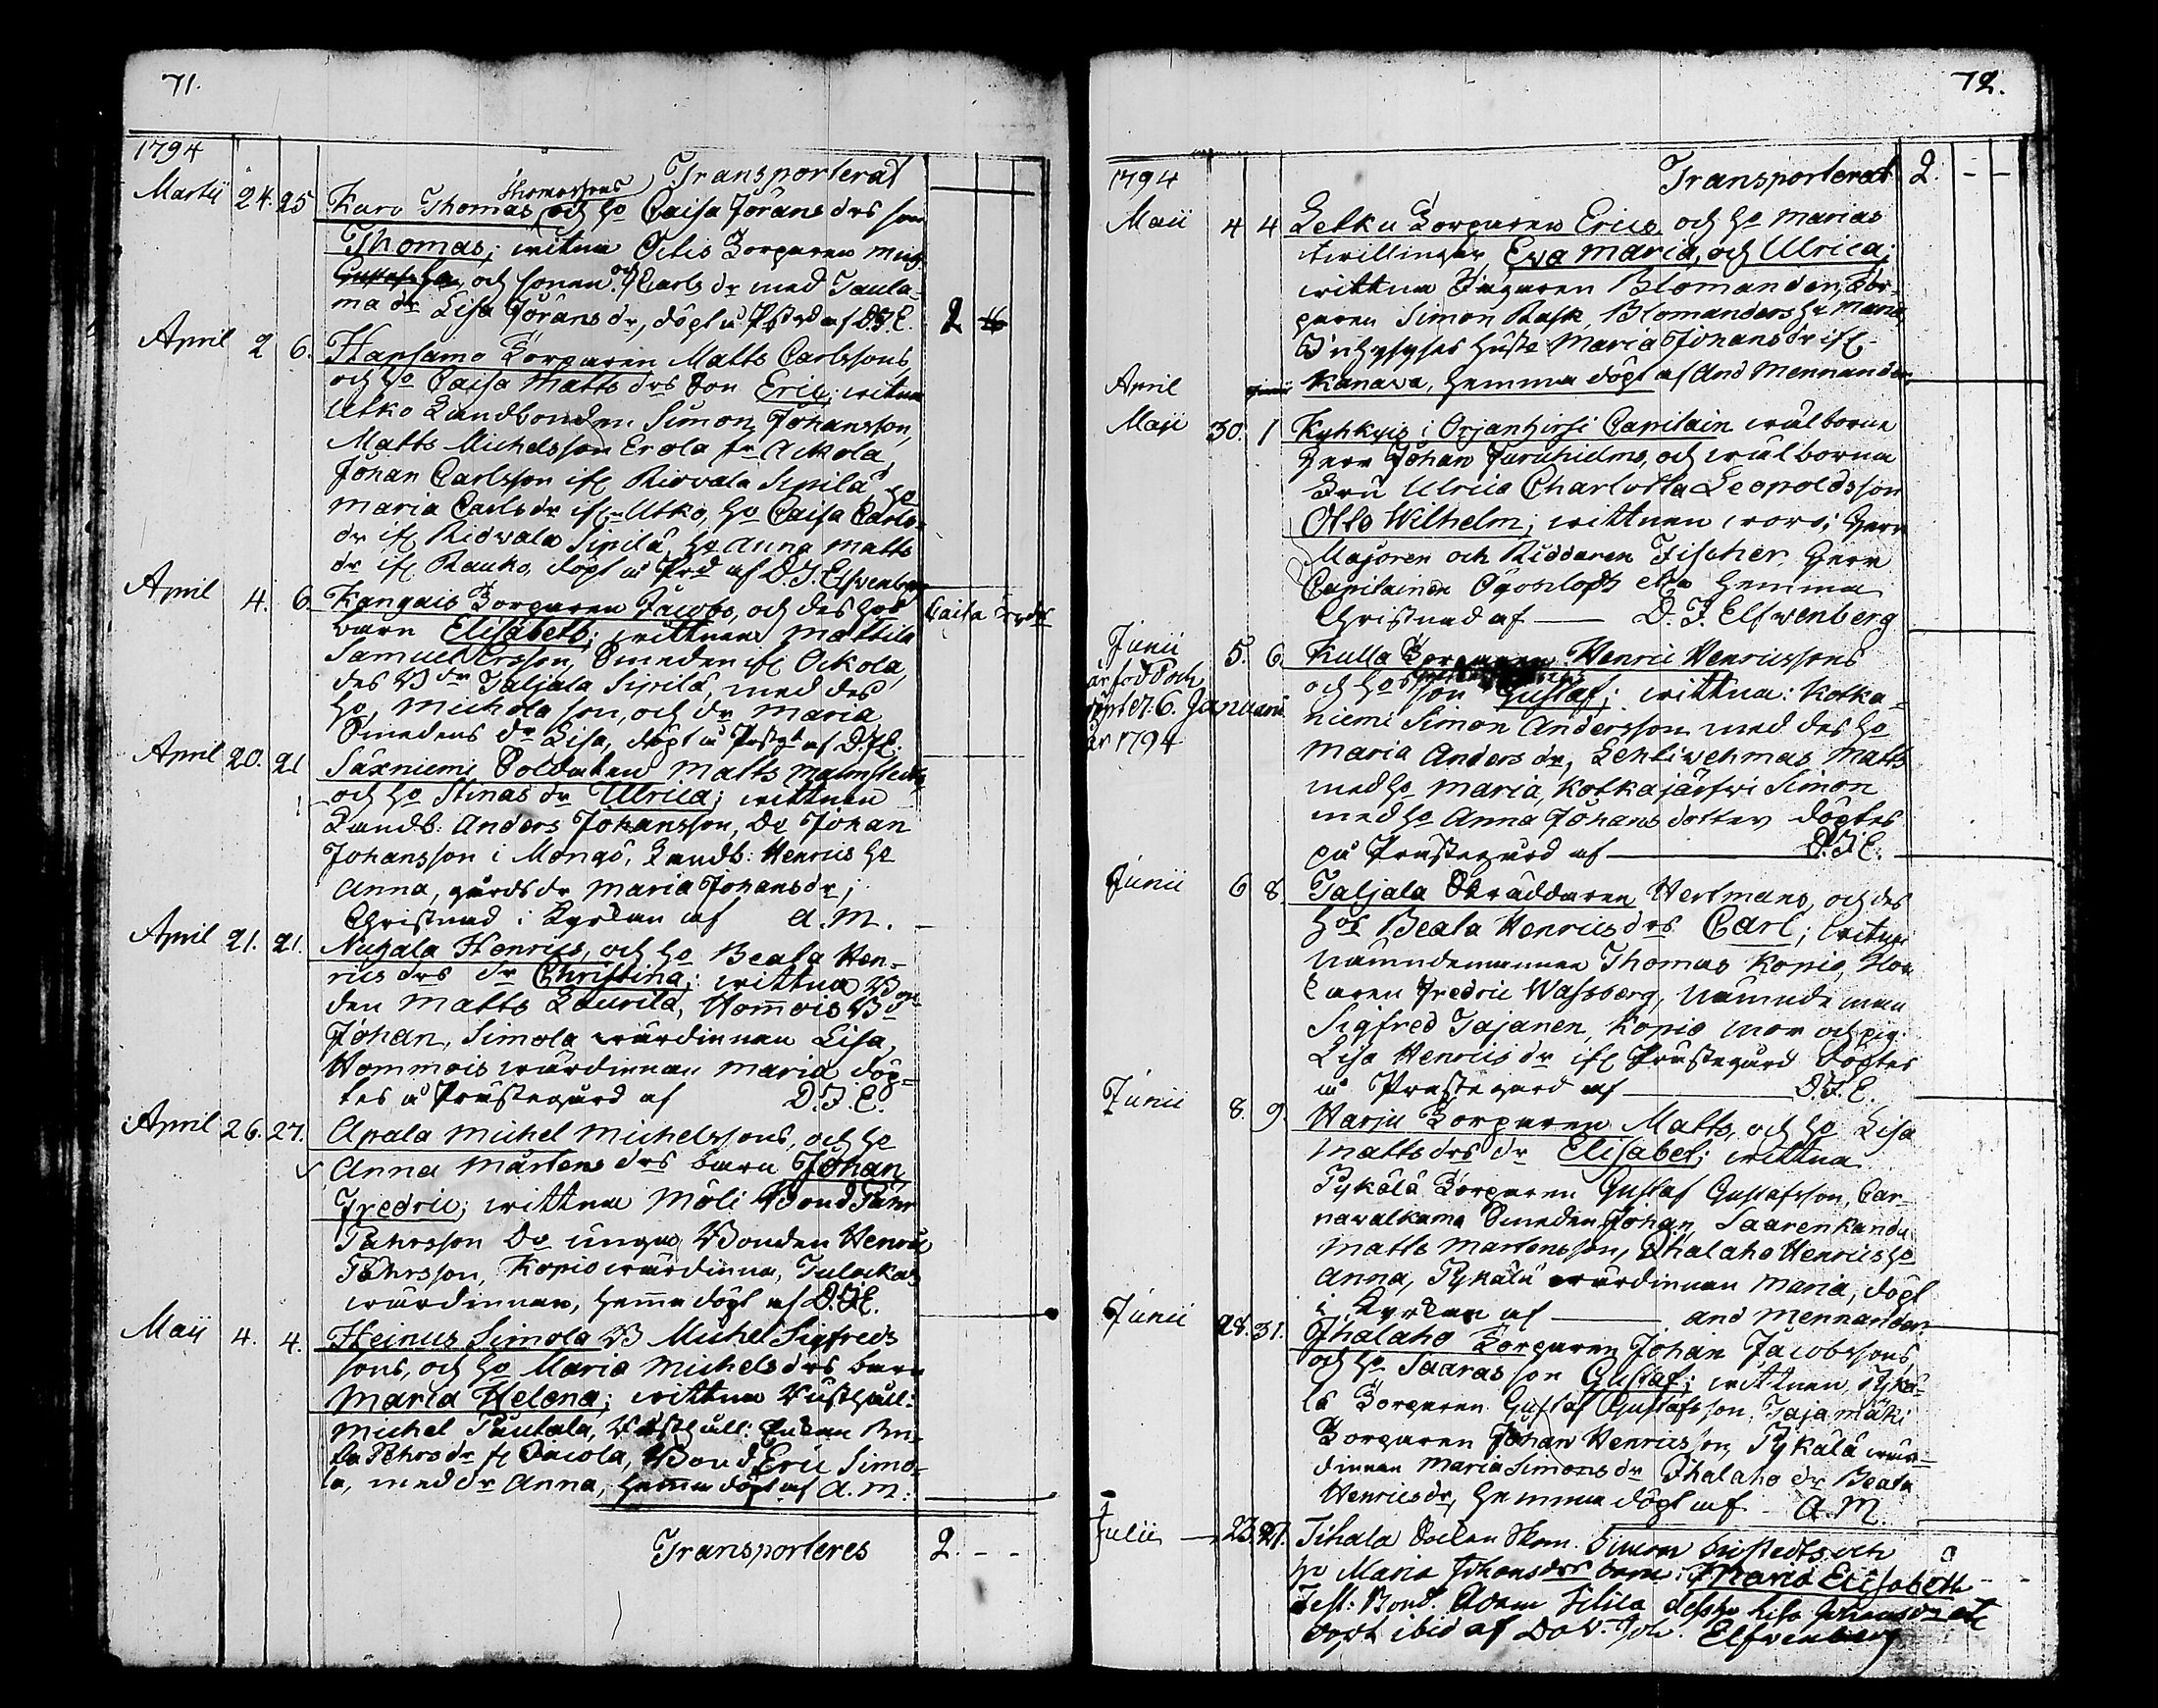 71.
1794
Transporterat
Martii 24. 25 Karo Thomas Thomæssons och ho Caisa Jörans drs son
Thomas; witnen Torparen
och sonen och Carls dr med Taula-
ma dr Lisa Jörans dr, döpt å Pstgd af D.J.E. 2
April 2 6. Hapsamo Torparen Matts Carlssons,
och ho Caisa Matts drs Son Eric; witnen
Utko Landbonden Simon Johansson,
Matts Michelsson Erola fr Ackola,
Johan Carlsson ifr Ridvala Sipilä ho
Maria Carls dr ifr Utko, ho Caisa Carls-
dr ifr Ridvala Sipilä, ho Anna Matts
dr ifr Rauko, döpt å Prd af D.J. Elfvenberg
April 4. 6. Kangais Torparen Jacobs, och des hos
barn Elisabeth; wittnen Mattila
Samuel Ersson, Smeden ifr Ackola,
des B dr Taljala Sipilä, med des
ho, Michola son, och dr Maria
Smedens dr Lisa, döpt å Pstgd af D.J.E.
April 20. 21 Saxniemi Soldaten Matts Malmstedts
och ho Stinas dr Ulrica; wittnen
Landb: Anders Johansson, Do Johan
Johansson i Mongö, Landb: Henrics ho
Anna, gårds dr Maria Johans dr;
Christnad i Kyrkan af A.M.
April 21. 21. Nuhala Henrics, och ho Beata Hen-
rics drs dr Christina; wittnen Bon-
den Matts Laurila, Hom̅ois Bd
Johan, Simola wärdinnan Lisa,
Hommois wärdinnan Maria döp-
tes å Prästegård af D.J.E.
April 26. 27. Apala Michel Michelssons, och ho
Anna Mårtens drs barn Johan
Fredric; wittnen Möli Bond Påhr
Påhrsson Do unga Bonden Henric
Påhrsson, Kopio wärdinna,
wärdinnan, hem̅a döpt af D.J.E.
Maii 4. 4. Heinus Simola B Michel Sigfreds
sons, och ho Maria Michels drs barn
Maria Helena; wittnen Rusthåll:
Michel Pautala, Rusthåll:
Påhrs dr fr Dacola, Bond Eric Simo-
la, med dr Anna, hem̅a döpt af A.M:
Transporteres 2. - -
72.
1794
Transporterat 2. - -
Maii 4 4 Letku Torparen Erics och ho Marias
twillingar Eva Maria, och Ulrica;
wittnen Jägaren Blomander, Tor-
paren Simon Rask, Blomanders ho Maria,
hustr Maria Johans dr ifr
Kanava, hemma döpt af And Mennander
April
Maji 30. 1 Kyhkyis i Orjanhirsi Capitain wälborne
Herr Johan Furuhielms, och wälborna
Fru Ulrica Charlotta Leopolds son
Otto Wilhelm; wittnen woro; Herr
Majoren och Riddaren Fischer, Herr
Capitainen etc hemma
Christnad af — D.J. Elfvenberg
Junii 5. 6. Kulla Torparen Henric Henricssons
och hos son Gustaf; wittna: Kotka-
är född och
döpt d. 6. Januarii
år 1794
niemi Simon Andersson med des ho
Maria Anders dr, Lehtiwehmas Matts
med ho Maria, Kotkajärfwi Simon
med ho Anna Johans dotter döptes
på Prästegård af — D.J.E.
Junii 6 8. Taljala Skräddaren Hertmans, och des
hos Beata Henrics drs Carl; witnen
Nämndemannen Thomas Kopio, Kloc-
karen Fredric Wassberg, Nämndeman
Sigfred Tajanen, Kopio mor och pig.
Lisa Henrics dr ifr Prästegård döptes
å Prästegård af — D.J.E.
Junii 8. 9. Harju Torparen Matts, och ho Lisa
Matts drs dr Elisabet; wittna
Pykälä Torparen Gustaf Gustafsson, Car-
nawalkama Smeden Johan, Saarenkanda
Matts Mårtensson, Ihalaho Henrics ho
Anna, Pykälä wärdinnan Maria, döpt
i Kyrkan af — And Mennander.
Junii 28. 31. Ihalaho Torparen Johan Jacobssons,
och ho Saaras son Gustaf; wittnen, Pykä-
lä Torparen Gustaf Gustafsson, Tajamäki
Torparen Johan Henricsson, Pykälä wär-
dinnan Maria Simons dr Ihalaho dr Beata
Henrics dr, hemma döpt af A.M.
Julii 23. 27. Tihala Simon och
ho Maria Johansdrs barn: Maria Elisabeth
Test: Bond. Adam dess ho Lisa Johansdr etc
döpt ibid af Dav. Joh. Elfvenberg